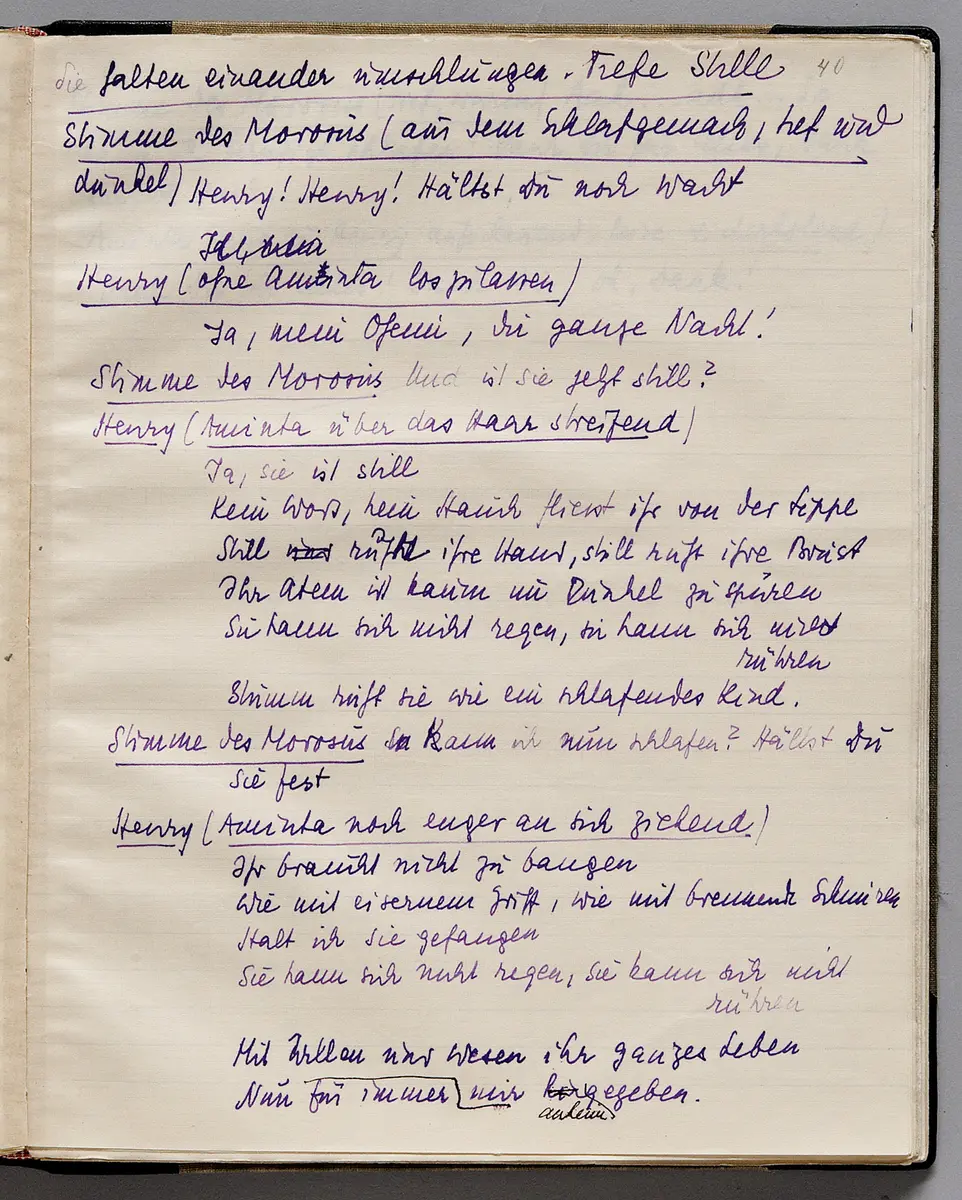 Sie halten einander umschlungen. Tiefe Stille 40
Stimme des Morosus (aus dem Schlafgemach, tief und
dunkel) Henry! Henry! Hältst Du noch Wacht
Henry (ohne Aminta loszulassen)
Ja, mein Oheim, die ganze Nacht!
Stimme des Morosus Und ist sie jetzt still?
Henry (Aminta über das Haar streifend)
Ja, sie ist still
Kein Wort, kein Hauch fliesst ihr von der Lippe
Still ruht ihre Hand, still ruht ihre Brust
Ihr Atem ist kaum im Dunkel zu spüren
Sie kann sich nicht regen, sie kann sich nicht
rühren
Stumm ruht sie wie ein schlafendes Kind.
Stimme des Morosus Kann ich nun schlafen? Hältst Du
sie fest
Henry (Aminta noch enger an sich ziehend)
Ihr braucht nicht zu bangen
Wie mit eisernem Griff, wie mit brennenden Schnüren
Halt ich sie gefangen
Sie kann sich nicht regen, sie kann sich nicht
rühren
Mit Willen und Wesen ihr ganzes Leben
Nun für immer mir hingegeben.
anheim